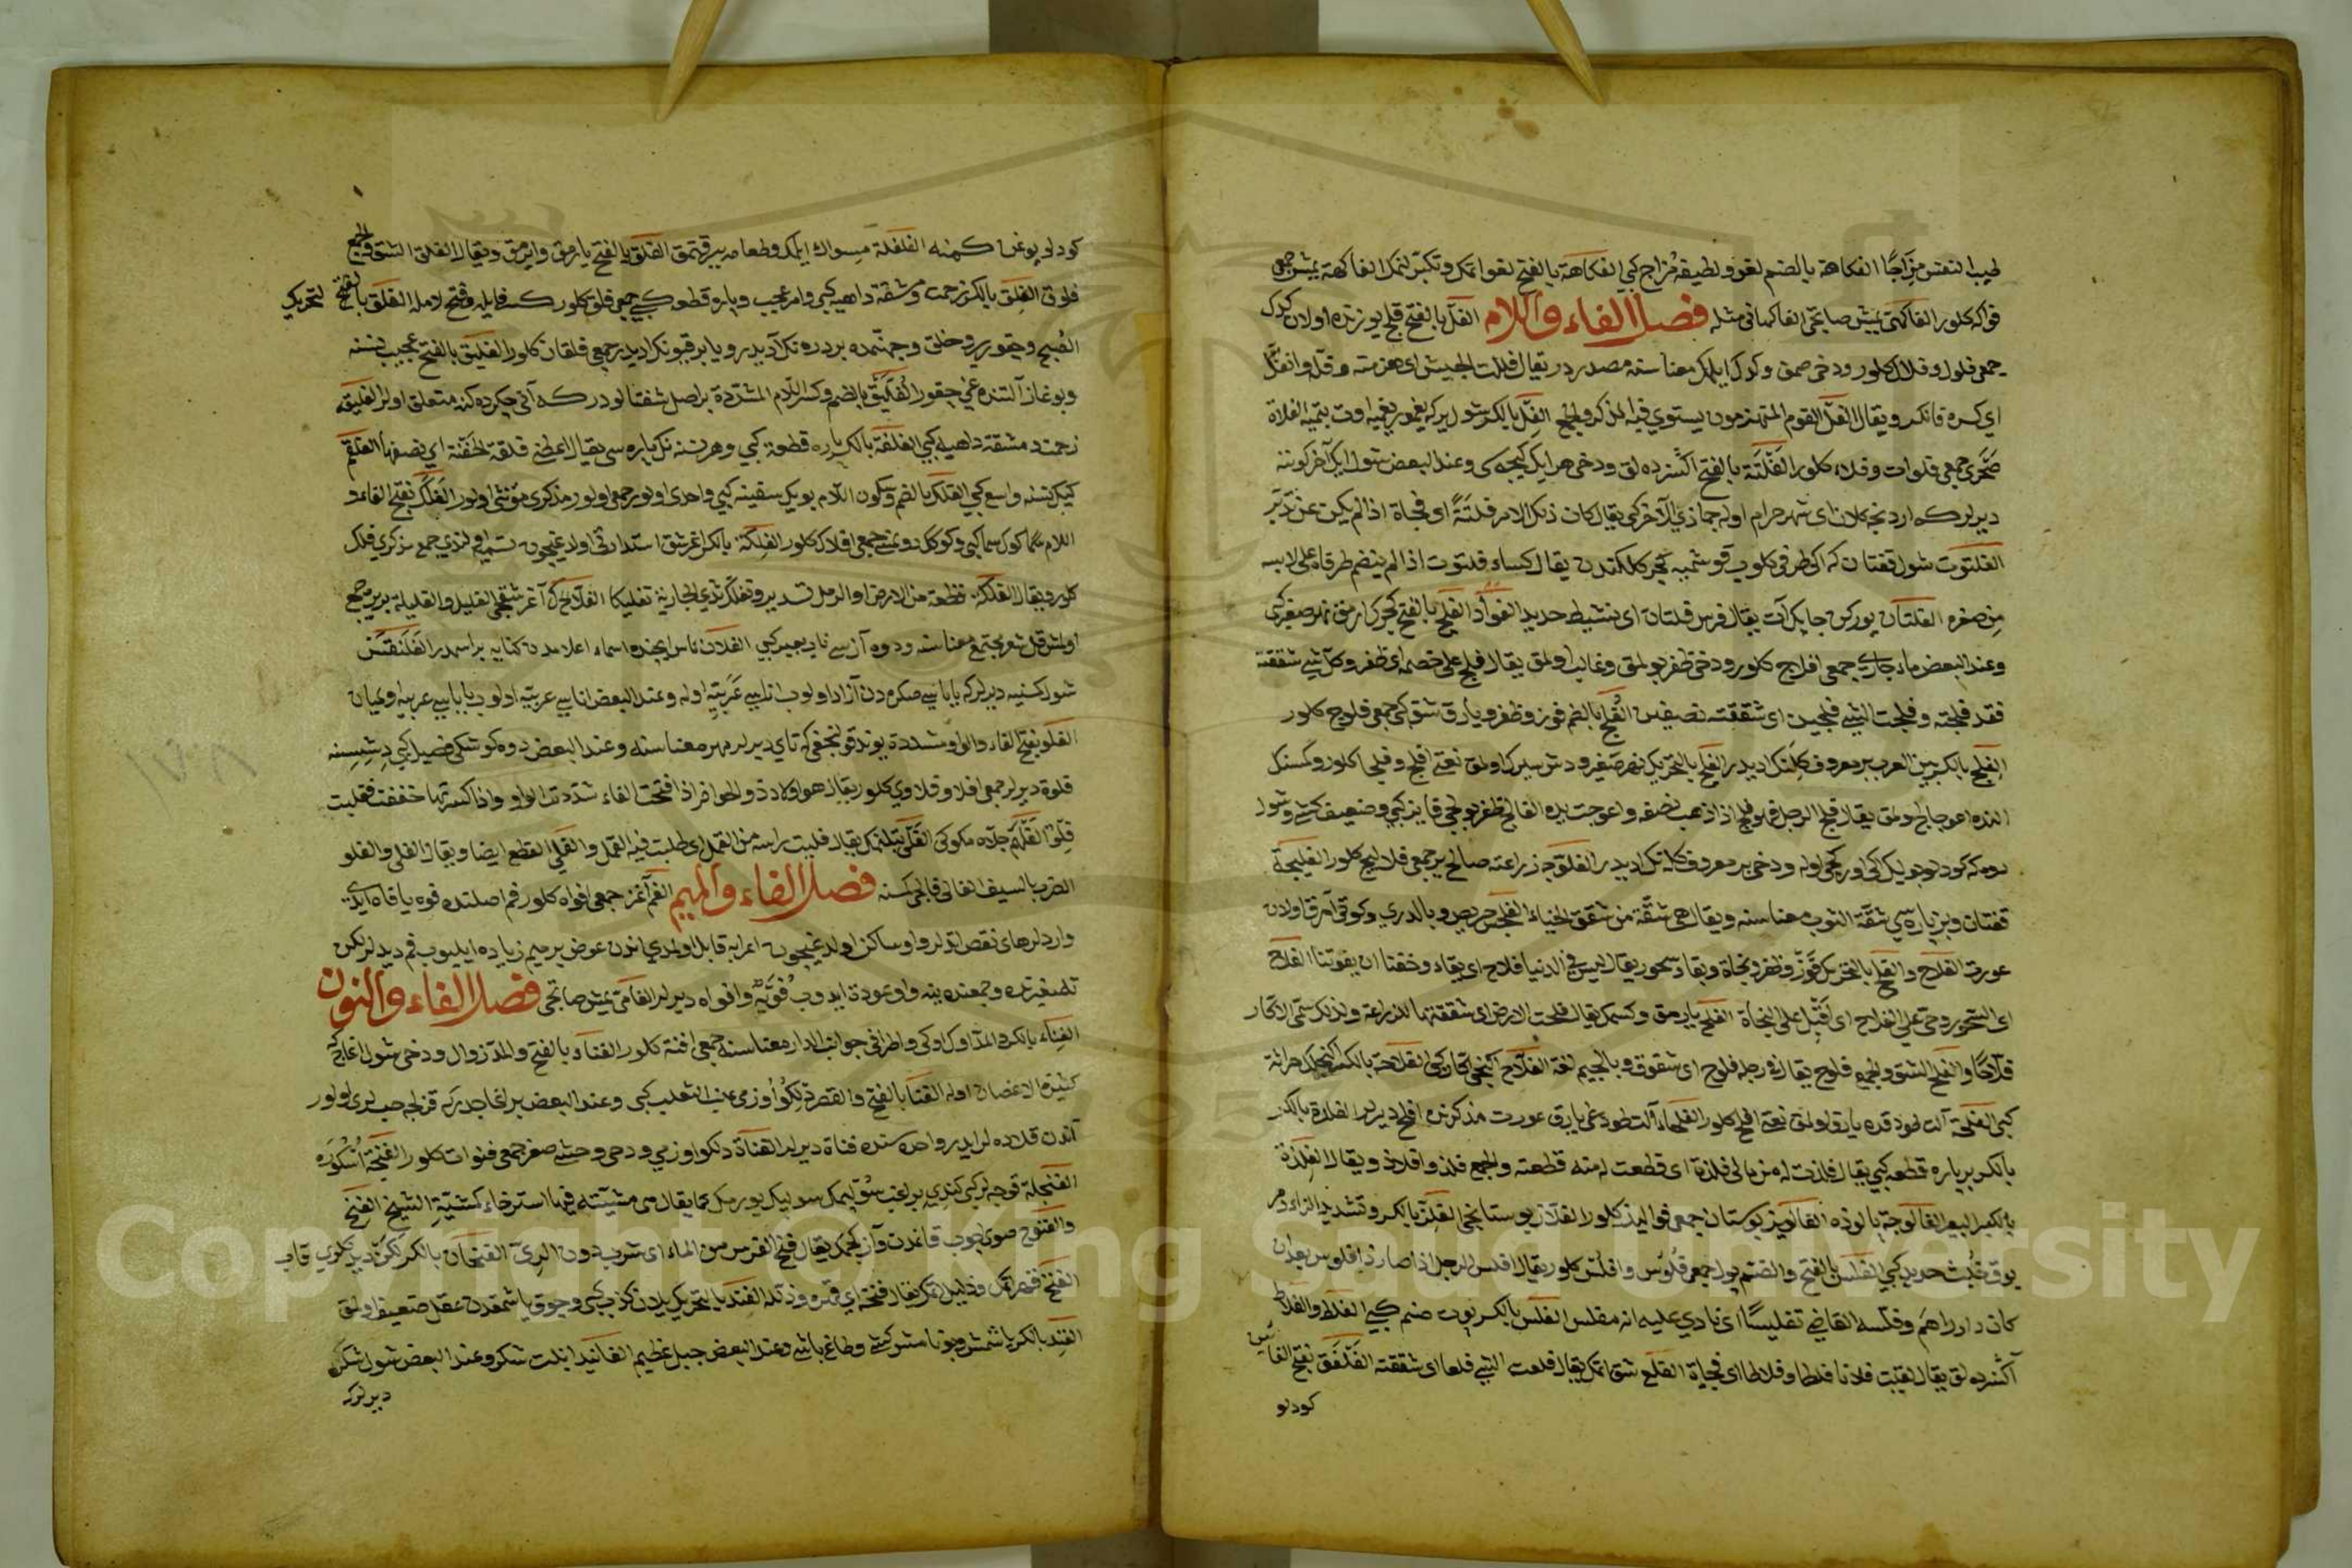 طيب النفس مزاجا الفكاهة بالضم لغو ولطيفه مزاح كبي الفكاهة بالفتح لغو اتمك وتكبر لنمك الفاكهة يمش جمعى
فواكه كلور الفاكهى يمش صاتجى الفاكهانى مثله فصل الفاء واللام الفل بالفتح قلج يوزنده اولان كدك
جمعى فلول وفلال كلور ودخى صمق وكدك ايلمك معناسنه مصدردر يقال فللت الجيش اى هزمته وفله وانفل
اى كسره فانكسر ويقال الفل القوم المنهزمون يستوي فيه المذكر والجمع الفل بالكسر شول يركه يغمور يغميه اوت بتميه الفلاة
صحرى جمعى فلوات وفلاء كلور الفلتة بالفتح اكسزده لق ودخى هر ايك كيجه سى وعند البعض شول ايك آخر كوننه
ديرلركه اردنجه كلان اى شهر حرام اوله جماذي الآخر كبي يقال كان ذلك الامر فلتة اى فجاة اذا لم يكن عن تدبر
الفلتوت شول قفتان كه ايكى طرفى كلوب قوشميه كجركلكندن يقال كساء فلتوت اذا لم ينضم طرفاه على لابسه
من صغره الفلتان يوركن جابك آت يقال فرس فلتان اى نشيط حديد الفؤاد الفلج بالفتح كجرك ارمق نهر صغير كبي
وعند البعض ماء جارى جمعى افلاج كلور ودخى ظفر بولمق وغالب اولمق يقال فلج على خصمه اى ظفر وكل شي شققته
فقد فلجته وفلجت الشي فلجين اى شققته نصفين الفلج بالضم فوز وظفر ويارق شق كبي جمعى فلوج كلور
الفلج بالكسر بين العرب بر معروف كلنك اديدر الفلج بالتحريك نهر صغير ودش سيرك اولمق نعتى افلج وفلجا كلور وكمسنك
الذه اعوجاج اولمق يقال فلج الرجل فهو فلج اذا ذهب نصفه واعوجت يده الفالج ظفر بولجى فايز كبي وضعيف كشى وشول
دوه كه كودلو جويك ايكى اوركجى اوله ودخى بر معروف كلنك اديدر الفلوجه زراعته صالح ير جمعى فلاليج كلور الفليجة
قفتان وبز پاره سى شقة الثوب معناسنه ويقال هى شقة من شقق الخباء الفلحس حريص وبالدري وكوتى آرق اولان
عورت الفلاح والفلح بالتحريك فوز وظفر ونجاة وبقا وسحور يقال ليس في الدنيا فلاح اى بقاء وخفنا ان يفوتنا الفلاح
اى السحور وحى على الفلاح اى اقبل على النجاة الفلح يارمق وكسمك يقال فلحت الارض اى شققتها للزراعة ولذلك سمى الاكار
فلاحا والفلح الشق والجمع فلوح يقال في رجله فلوح اى شقوق وبالجيم لغة الفلاح اكنجى اكار كبي الفلاحة بالكسر اكنجلك حراثة
كبي الفلحة آلت دودقده يارق اولمق نعتى افلح كلور الفلحاء آلت طوداغى يارق عورت مذكرنده افلح ديرلر الفلذة بالكسر
بالكسر بر پاره قطعه كبي يقال فلذت له من مالى فلذة اى قطعت له منه قطعته والجمع فلذ وافلاذ ويقال الفلذة
الفالوذجه پالوذه الفاليز بوستان جمعى فواليز كلور الفلاز بوستانجى الفلز بالكسر وتشديد الزاء دمر
بوقى خبث حديد كبي الفلس بالفتح والضم پول جمعى فلوس وافلس كلور يقال افلس الرجل اذا صار ذا فلوس بعد ان
كان ذا دراهم وفلسه القاضى تفليسا اى نادي عليه انه مفلس الفلس بالكسر پوت صنم كبي الفلط والفلاط
آكسزده لق يقال لقيت فلانا فلطا وفلاطا اى فجاة الفلع شق اتمك يقال فلعت الشي فلعا اى شققته الفلقق بفتح الفائين
كودلو
كودلو يوغن كمسنه الفلفلة مسواك ايلمك وطعامه ببر قتمق الفلق بالفتح يارمق وايرمق ويقال الفلق الشق والجمع
فلوق الفلق بالكسر زحمت ومشقة داهيه كبي وامر عجيب وپاره قطعه كبي جمعى فلق كلور كسر فايله وفتح لامله الفلق بالفتح لتحريك
الصبح وچقور ير وخلق وجهنمده بر دره نك آديدر ويا بر قيونك اديدر جمعى فلقان كلور الفليق بالفتح عجيب نسنه
وبوغاز آلتنده غى چقور الفليق بالضم وكسر اللام المشددة بر اصل شفتالودركه آتى چكردكنه متعلق اولمز الفليقه
زحمت ومشقة داهيه كبي الفلقة بالكسر پاره قطعة كبي وهر نسنه نك پاره سى يقال اعطنى فلقة الجفنة اى نصفها الفيلق
كنيك نسنه واسع كبي الفلك بالضم وسكون اللام بويك سفينه كبي واحدى اولور جمعى اولور مذكرى مؤنثى اولور الفلك بفتح الفاء و
اللام كمى كوك سما كبي وكوكك دونمسى جمعى افلاك كلور الفلكة بالكسر اغرشق استدارتى اولدغيچون تسميه اولندي جمع مذكري فلك
كلور ويقال الفلكة قطعة من الارض او الرمل تستدير وتفلك ثدي الجارية تفليكا الفلاح آغرشقجى الفليل والفليلة بربر جمع
اولمش قل شعر مجتمع معناسنه ودوه آزيسى ناب بعير كبي الفلان ناس ايجنده اسماء اعلامدن كنايه بر اسمدر الفلنقس
شول كمسنيه ديرلركه باباسى صكره دن آزاد اولوب اناسى عربيه اوله وعند البعض اناسى عربيه اولوب باباسى عربيه اولميان
الفلو بفتح الفاء والواو مشددة يوندقولنجغى كه تاى ديرلر مهر معناسنه وعند البعض دوه كوشكى فصيل كبي ديشيسنه
فلوة ديرلر جمعى افلاء وفلاوى كلور يقال هو اولاد ذوالحوافر اذا فتحت الفاء شددت الواو واذا كسرتها خففت فقلت
فلو الفلم جلاه مكوكى الفلى بتلنمك يقال فليت راسه من القمل اى طلبت فيه القمل والفلى القطع ايضا ويقال الفلى والفلو
الضرب بالسيف الفانى قالجى كسنه فصل الفاء والميم الفم آغز جمعى افواه كلور فم اصلنده فوه يا فاه ايدى
واردلر هاى نقص اتدلر واو ساكن اولدغيچون اعرابه قابل اولمدي اندن عوض بر ميم زياده ايليوب فم ديديلر لكن
تصغيرنده وجمعنده ينه واو عودة ايدوب فويه وافواه ديرلر الفامى يمش صاتجى فصل الفاء والنون
الفناء بالكسر والمد اوك اوكى واطرافى جوانب الدار معناسنه جمعى افنية كلور الفناء بالفتح والمد زوال ودخى شول اغاج كه
كثيرة الاغصان اوله الفنا بالفتح والقصر دلكو اوزمى عنب الثعلب كبي وعند البعض بر اغاجدركه قزلجه حبلرى اولور
آندن قلاده لر ايدرلر واحده سنده فناة ديرلر الفناة دلكو اوزمى ودخى وحشى صغر جمعى فنوات كلور الفنجة اسكوره
الفنجلة قوجه لر كبي كندى بر اغب سوليمك سوليك يورمك كما يقال هى مشيته فيها استرخاء كمشية الشيخ الفنح
والفنوح صوى طيوب قانمدن آز ايچمك يقال فنح الفرس من الماء اى شرب دون الرى الفنجان بالكسر
الفنخ قهر اتمك وذليل اتمك يقال فنخه اى قهره وذلله الفند بالتحريك يلان كذب كبي وچوق ياشمقدن عقل ضعيف اولمق
الفند بالكسر ياشمش وبونامش كشى وطاغ باشى وعند البعض جبل عظيم الفانيد ابلت شكر وعند البعض شول شكره
ديرلركه
Copyright © King Saud University